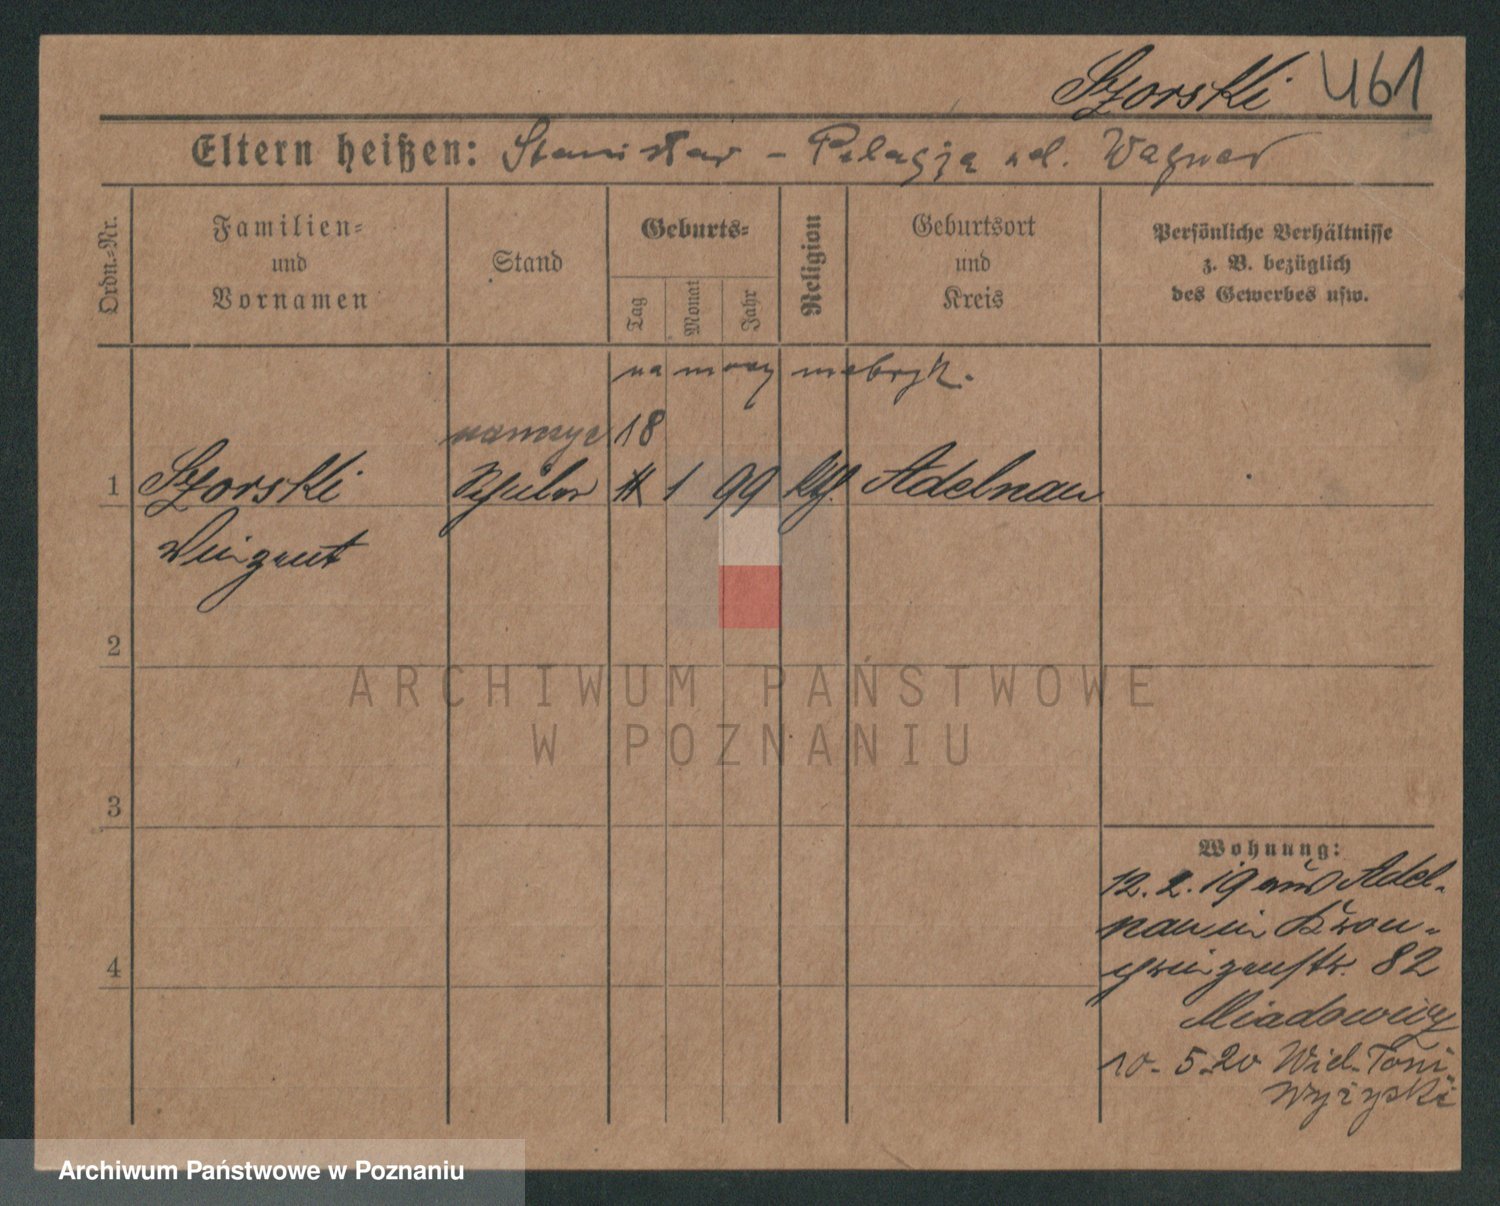 Szorski 461
Eltern heißen: Stanisław - Pelagja ad. Wagner
Ordn.-Nr.
Familien-
und
Vornamen
Stand
Geburts-
Tag
Monat
Jahr
Religion
Geburtsort
und
Kreis
Persönliche Verhältnisse
z. B. bezüglich
des Gewerbes usw.
na mocy metryk.
18
1 Szorski Schüler 1 99 kth. Adelnau
Vinzent
2
3
4
Wohnung:
12.2.19 aus Adel-
nau in Kron-
prinzenstr. 82
Miadowicz
10-5-20 Wich-Toni
Wyrzyski
ARCHIWUM PAŃSTWOWE
W POZNANIU
Archiwum Państwowe w Poznaniu